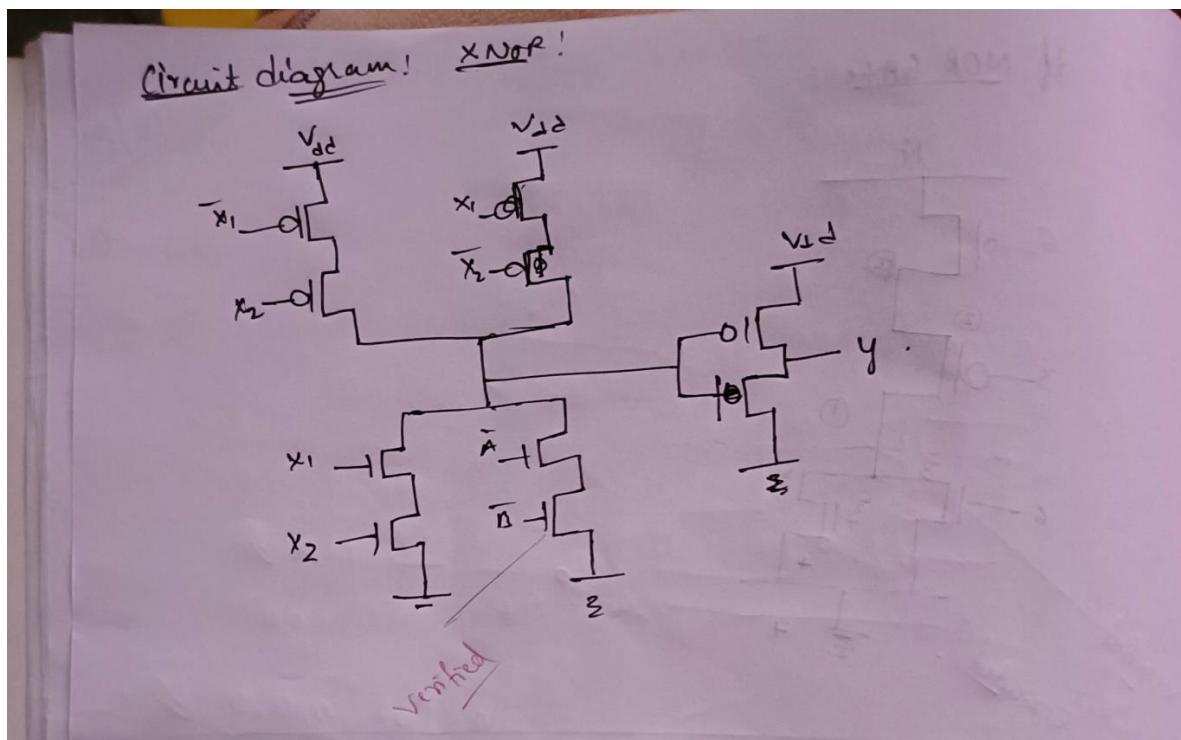 Circuit diagram! XNOR!
Vdd
Vdd
x̅1
x1
x̅2
x2
Vdd
y
x1
A̅
x2
B̅
verified